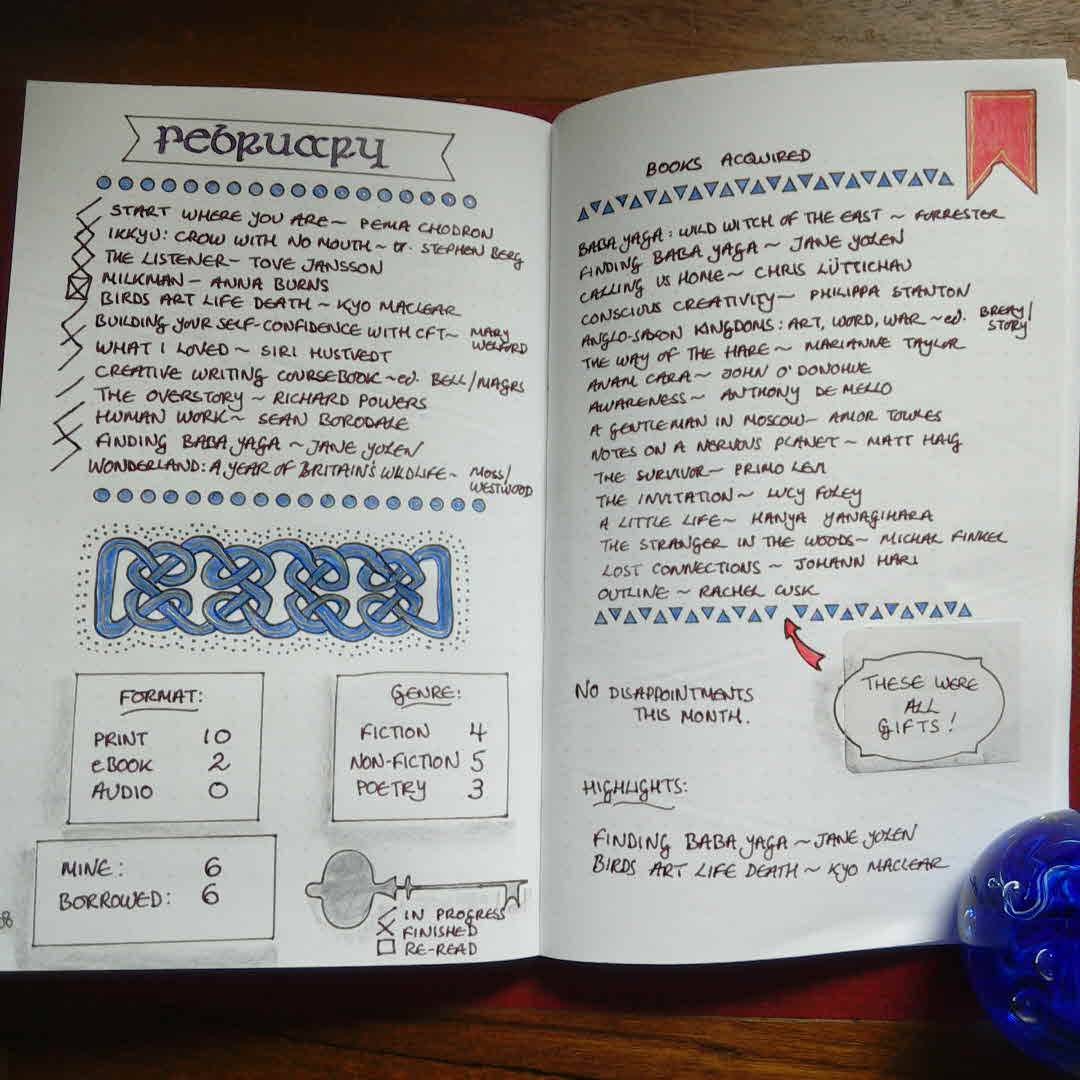 February
START WHERE YOU ARE ~ PEMA CHODRON
IKKYU: CROW WITH NO MOUTH ~ tr. STEPHEN BERG
THE LISTENER ~ TOVE JANSSON
MILKMAN ~ ANNA BURNS
BIRDS ART LIFE DEATH ~ KYO MACLEAR
BUILDING YOUR SELF-CONFIDENCE WITH CFT ~ MARY
WELFORD
WHAT I LOVED ~ SIRI HUSTVEDT
CREATIVE WRITING COURSEBOOK ~ ed. BELL/MAGRS
THE OVERSTORY ~ RICHARD POWERS
HUMAN WORK ~ SEAN BORODALE
FINDING BABA YAGA ~ JANE YOLEN
WONDERLAND: A YEAR OF BRITAIN'S WILDLIFE ~ MOSS/
WESTWOOD
FORMAT:
PRINT 10
eBOOK 2
AUDIO 0
GENRE:
FICTION 4
NON-FICTION 5
POETRY 3
MINE: 6
BORROWED: 6
IN PROGRESS
FINISHED
RE-READ
BOOKS ACQUIRED
BABA YAGA: WILD WITCH OF THE EAST ~ FORRESTER
FINDING BABA YAGA ~ JANE YOLEN
CALLING US HOME ~ CHRIS LÜTTICHAU
CONSCIOUS CREATIVITY ~ PHILIPPA STANTON
ANGLO-SAXON KINGDOMS: ART, WORD, WAR ~ ed. BREAY/
STORY
THE WAY OF THE HARE ~ MARIANNE TAYLOR
ANAM CARA ~ JOHN O'DONOHUE
AWARENESS ~ ANTHONY DE MELLO
A GENTLEMAN IN MOSCOW ~ AMOR TOWLES
NOTES ON A NERVOUS PLANET ~ MATT HAIG
THE SURVIVOR ~ PRIMO LEVI
THE INVITATION ~ LUCY FOLEY
A LITTLE LIFE ~ HANYA YANAGIHARA
THE STRANGER IN THE WOODS ~ MICHAEL FINKEL
LOST CONNECTIONS ~ JOHANN HARI
OUTLINE ~ RACHEL CUSK
THESE WERE
ALL
GIFTS!
NO DISAPPOINTMENTS
THIS MONTH.
HIGHLIGHTS:
FINDING BABA YAGA ~ JANE YOLEN
BIRDS ART LIFE DEATH ~ KYO MACLEAR